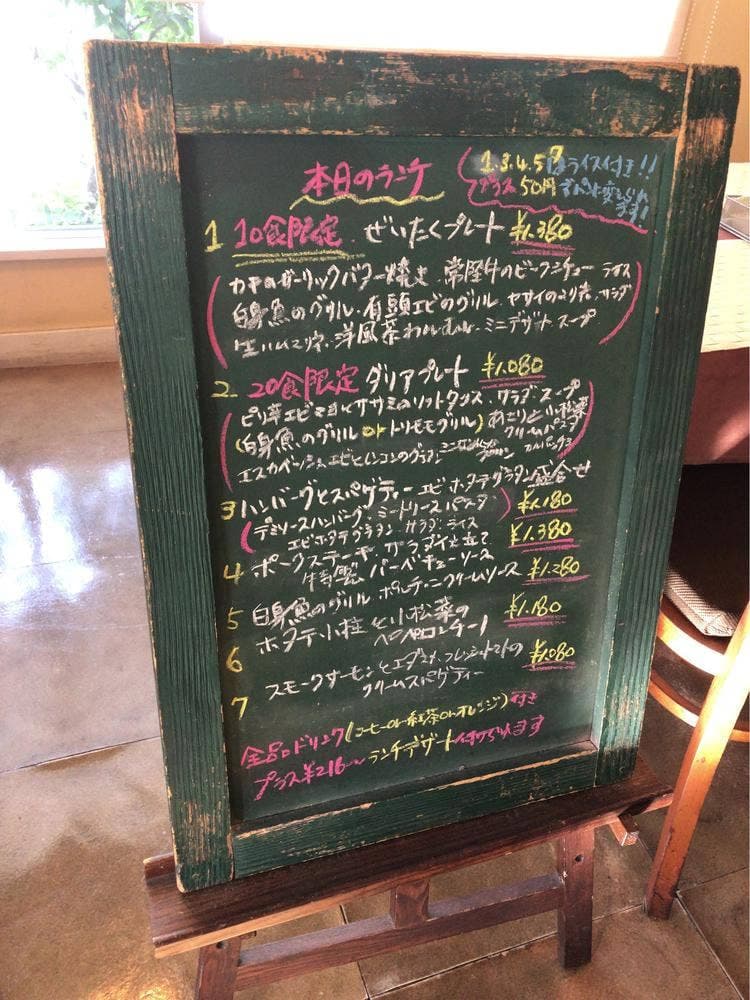 本日のランチ
1.3.4.5 はライス付き!!
プラス50円
1 10食限定 ぜいたくプレート ¥1,380
カキのガーリックバター焼き 常陸牛のビーフシチュー ライス
白身魚のグリル 有頭エビのグリル ヤサイの サラダ
生ハム 洋風茶わんむし ミニデザート スープ
2 20食限定 ダリアプレート ¥1,080
ピリ辛エビ ササミの サラダ スープ
(白身魚のグリル or トリモモグリル) あさりと小松菜
クリームパスタ
エスカベッシュ エビとレンコンのグラタン
3 ハンバーグとスパゲティー エビホタテグラタン盛合せ
(デミソースハンバーグ ミートソースパスタ) ¥1,180
エビホタテグラタン サラダ ライス
4 ポークステーキ サラダ仕立て ¥1,380
特製 バーベキューソース
5 白身魚のグリル ポルチーニクリームソース ¥1,280
6 ホタテ小柱と小松菜の ¥1,180
ペペロンチーノ
7 スモークサーモンとエダマメ フレッシュトマトの ¥1,080
クリームスパゲティー
全品ドリンク(コーヒーor紅茶orオレンジ)付き
プラス¥216〜ランチデザート付けられます